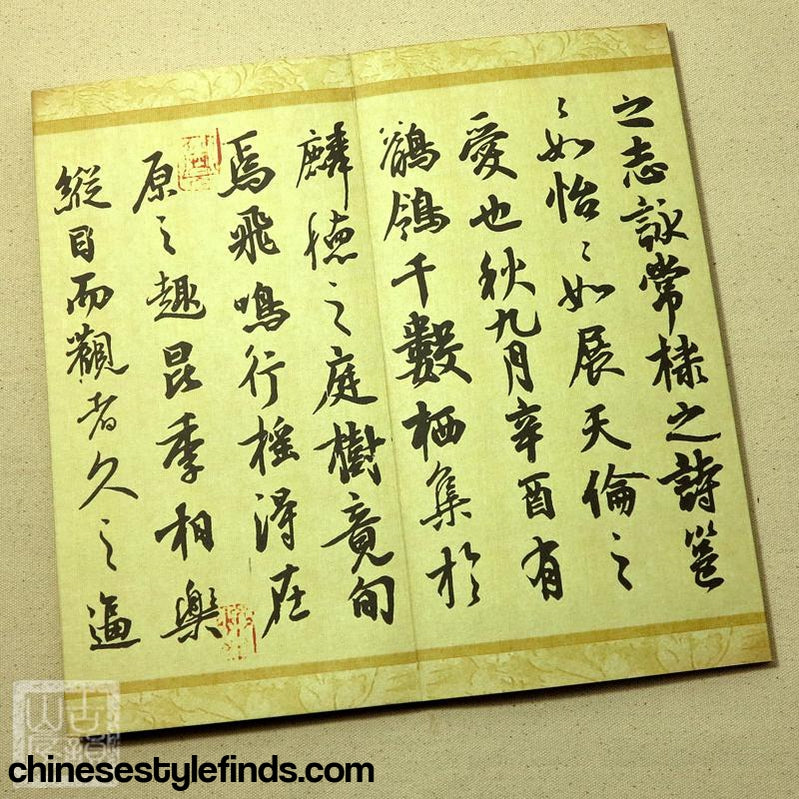 之志詠常棣之詩邕
〻如怡〻如展天倫之
愛也秋九月辛酉有
鶺鴒千數栖集於
麟德之庭樹竟旬
焉飛鳴行摇得在
原之趣昆季相樂
縱目而觀者久之逼
chinesestylefinds.com